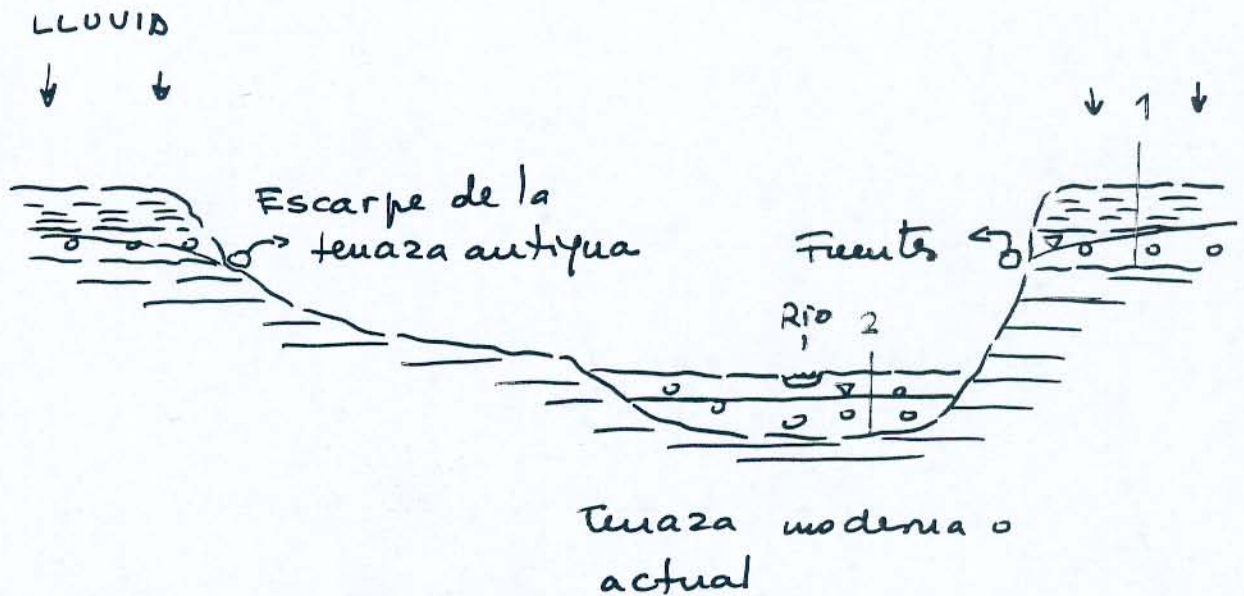 LLUVIA
1
Escarpe de la
terraza antigua
Fuentes
Río 2
Terraza moderna o
actual